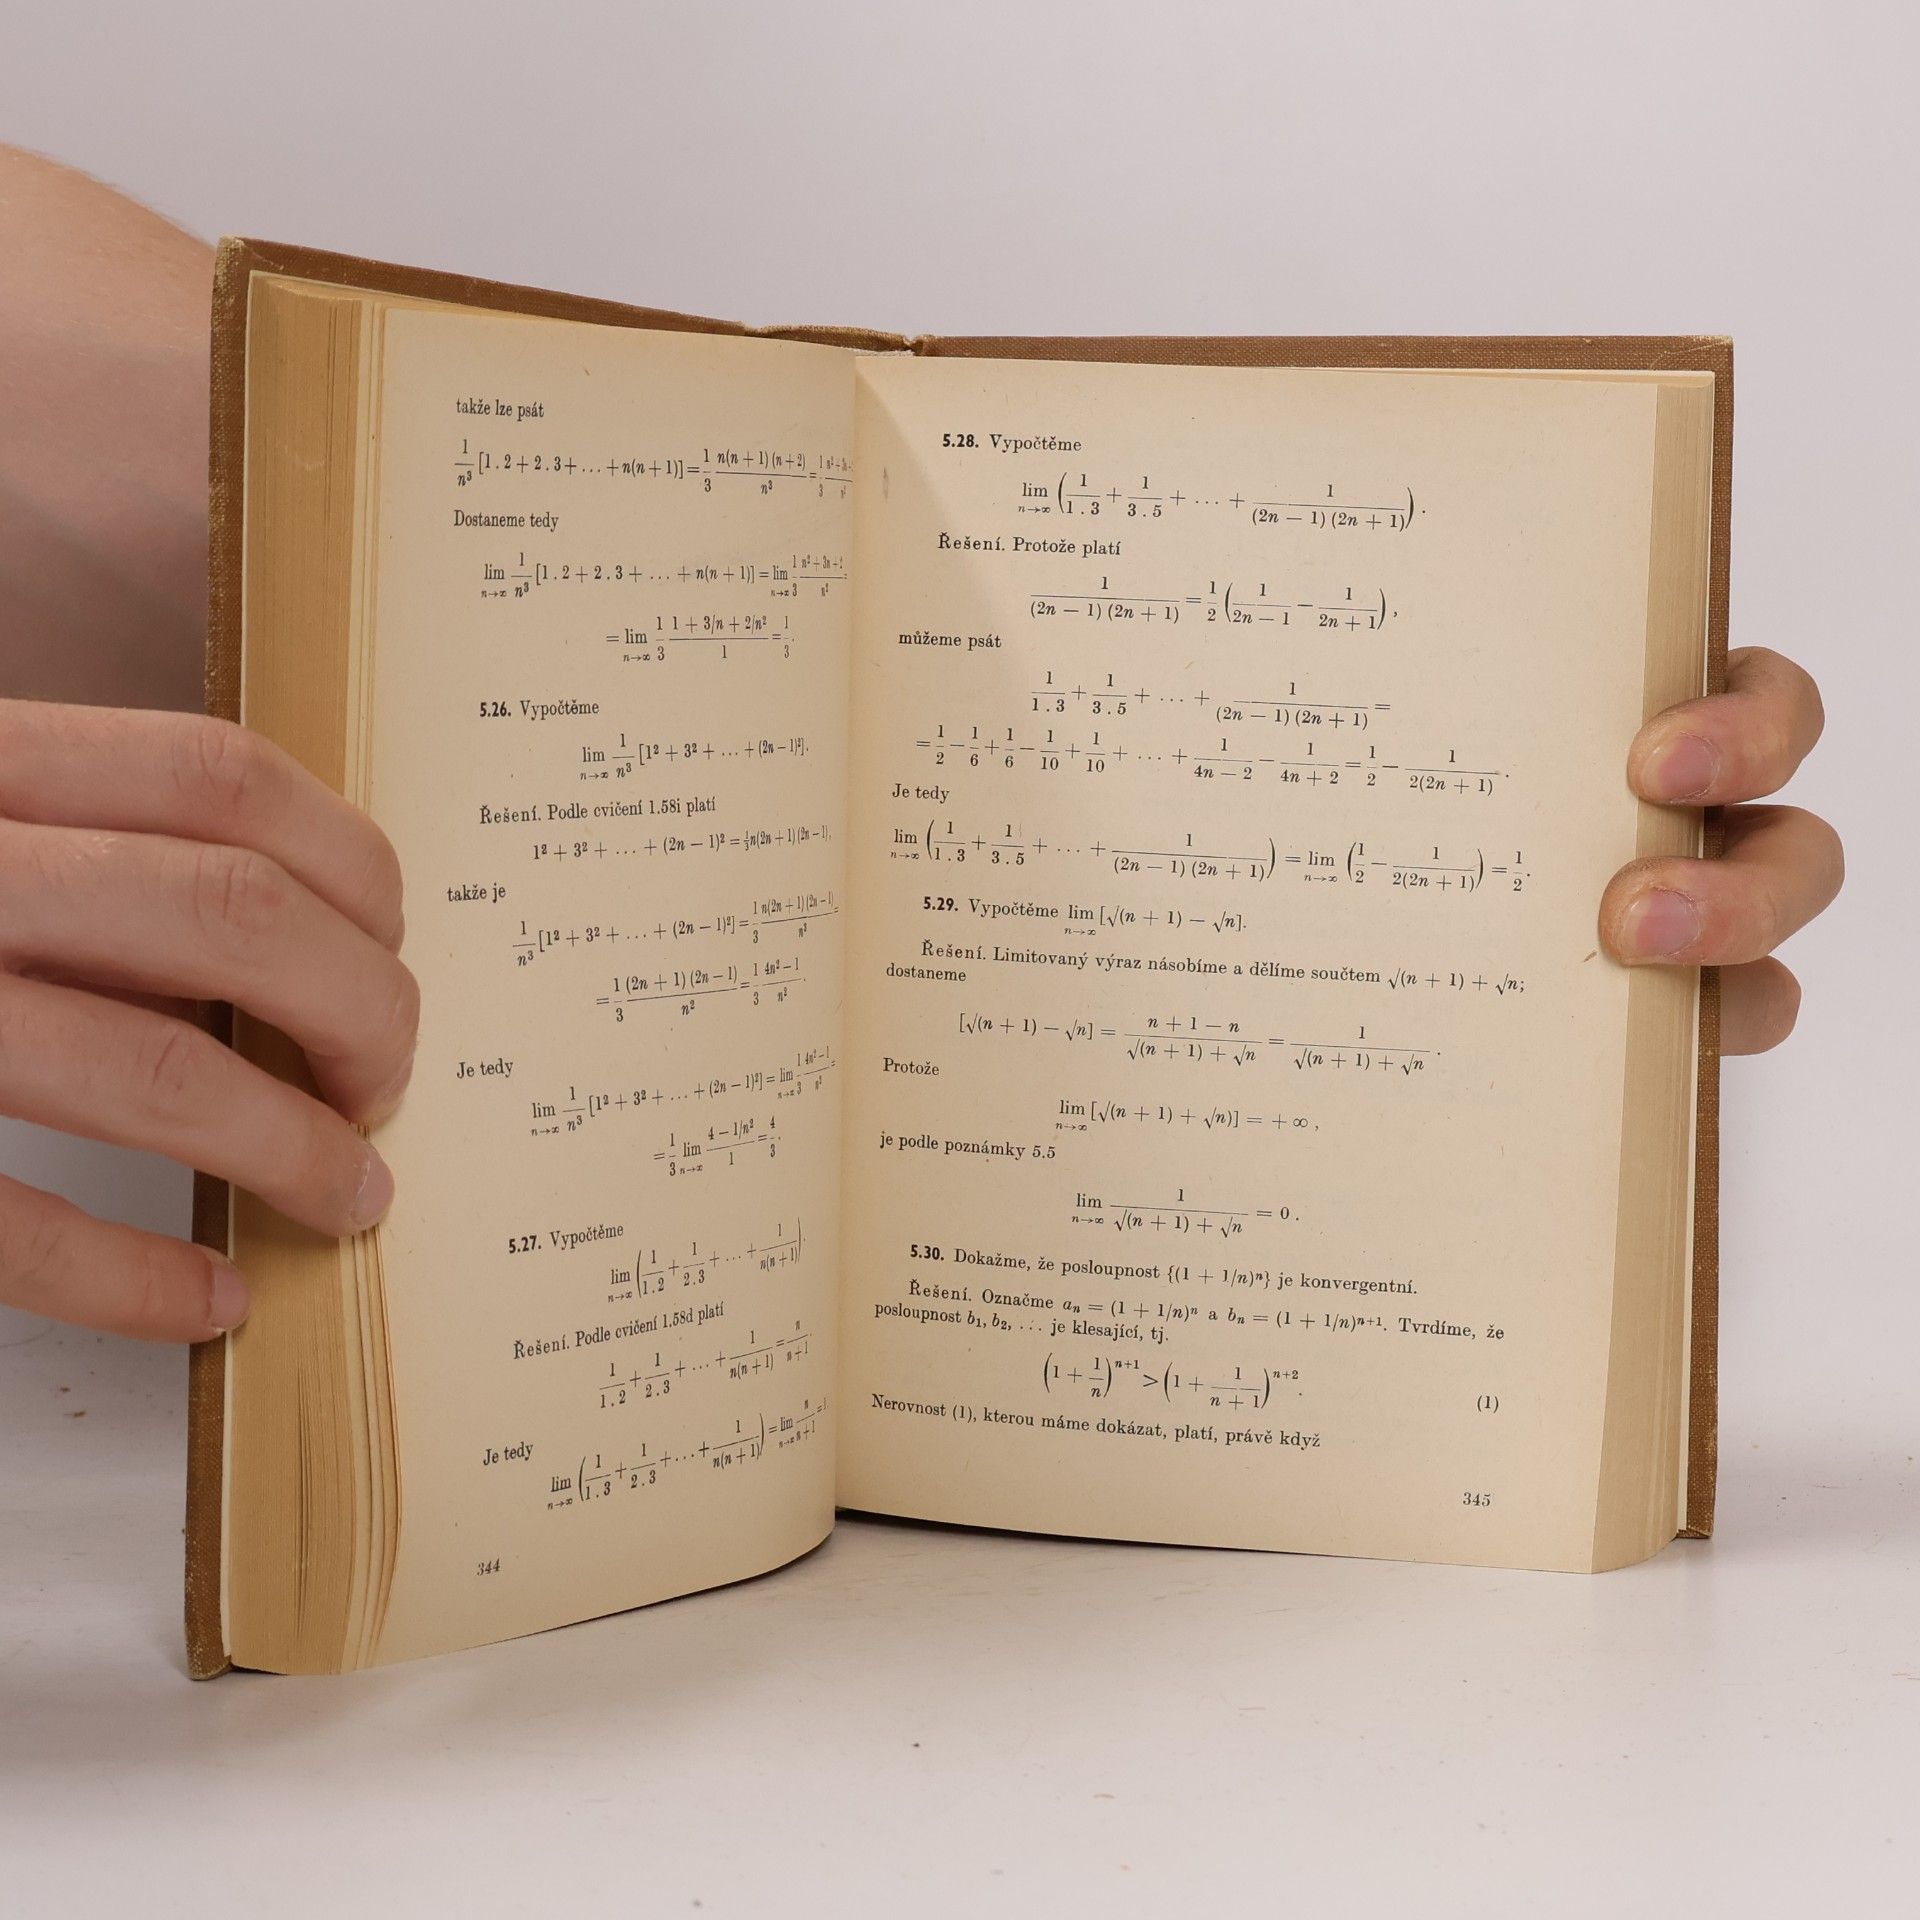 takže lze psát
1/n³ [1 . 2 + 2 . 3 + ... + n(n + 1)] = 1/3 n(n + 1) (n + 2)/n³ =
Dostaneme tedy
lim n→∞ 1/n³ [1 . 2 + 2 . 3 + ... + n(n + 1)] = lim n→∞ 1/3 n² + 3n + 2/n² =
= lim n→∞ 1/3 1 + 3/n + 2/n²/1 = 1/3.
5.26. Vypočtěme
lim n→∞ 1/n³ [1² + 3² + ... + (2n − 1)²].
Řešení. Podle cvičení 1.58i platí
1² + 3² + ... + (2n − 1)² = ⅓n(2n + 1) (2n − 1),
takže je
1/n³ [1² + 3² + ... + (2n − 1)²] = 1/3 n(2n + 1) (2n − 1)/n³ =
= 1/3 (2n + 1) (2n − 1)/n² = 1/3 4n² − 1/n².
Je tedy
lim n→∞ 1/n³ [1² + 3² + ... + (2n − 1)²] = lim n→∞ 1/3 4n² − 1/n² =
= 1/3 lim n→∞ 4 − 1/n²/1 = 4/3.
5.27. Vypočtěme
lim n→∞ (1/1 . 2 + 1/2 . 3 + ... + 1/n(n + 1)).
Řešení. Podle cvičení 1.58d platí
1/1 . 2 + 1/2 . 3 + ... + 1/n(n + 1) = n/n + 1.
Je tedy
lim n→∞ (1/1 . 3 + 1/2 . 3 + ... + 1/n(n + 1)) = lim n→∞ n/n + 1 = 1
344
5.28. Vypočtěme
lim n→∞ (1/1 . 3 + 1/3 . 5 + ... + 1/(2n − 1) (2n + 1)).
Řešení. Protože platí
1/(2n − 1) (2n + 1) = 1/2 (1/2n − 1 − 1/2n + 1),
můžeme psát
1/1 . 3 + 1/3 . 5 + ... + 1/(2n − 1) (2n + 1) =
= 1/2 − 1/6 + 1/6 − 1/10 + 1/10 + ... + 1/4n − 2 − 1/4n + 2 = 1/2 − 1/2(2n + 1).
Je tedy
lim n→∞ (1/1 . 3 + 1/3 . 5 + ... + 1/(2n − 1) (2n + 1)) = lim n→∞ (1/2 − 1/2(2n + 1)) = 1/2.
5.29. Vypočtěme lim n→∞ [√(n + 1) − √n].
Řešení. Limitovaný výraz násobíme a dělíme součtem √(n + 1) + √n;
dostaneme
[√(n + 1) − √n] = n + 1 − n/√(n + 1) + √n = 1/√(n + 1) + √n.
Protože
lim n→∞ [√(n + 1) + √n)] = + ∞ ,
je podle poznámky 5.5
lim n→∞ 1/√(n + 1) + √n = 0 .
5.30. Dokažme, že posloupnost {(1 + 1/n)ⁿ} je konvergentní.
Řešení. Označme aₙ = (1 + 1/n)ⁿ a bₙ = (1 + 1/n)ⁿ⁺¹. Tvrdíme, že
posloupnost b₁, b₂, ... je klesající, tj.
(1 + 1/n)ⁿ⁺¹ > (1 + 1/n + 1)ⁿ⁺². (1)
Nerovnost (1), kterou máme dokázat, platí, právě když
345